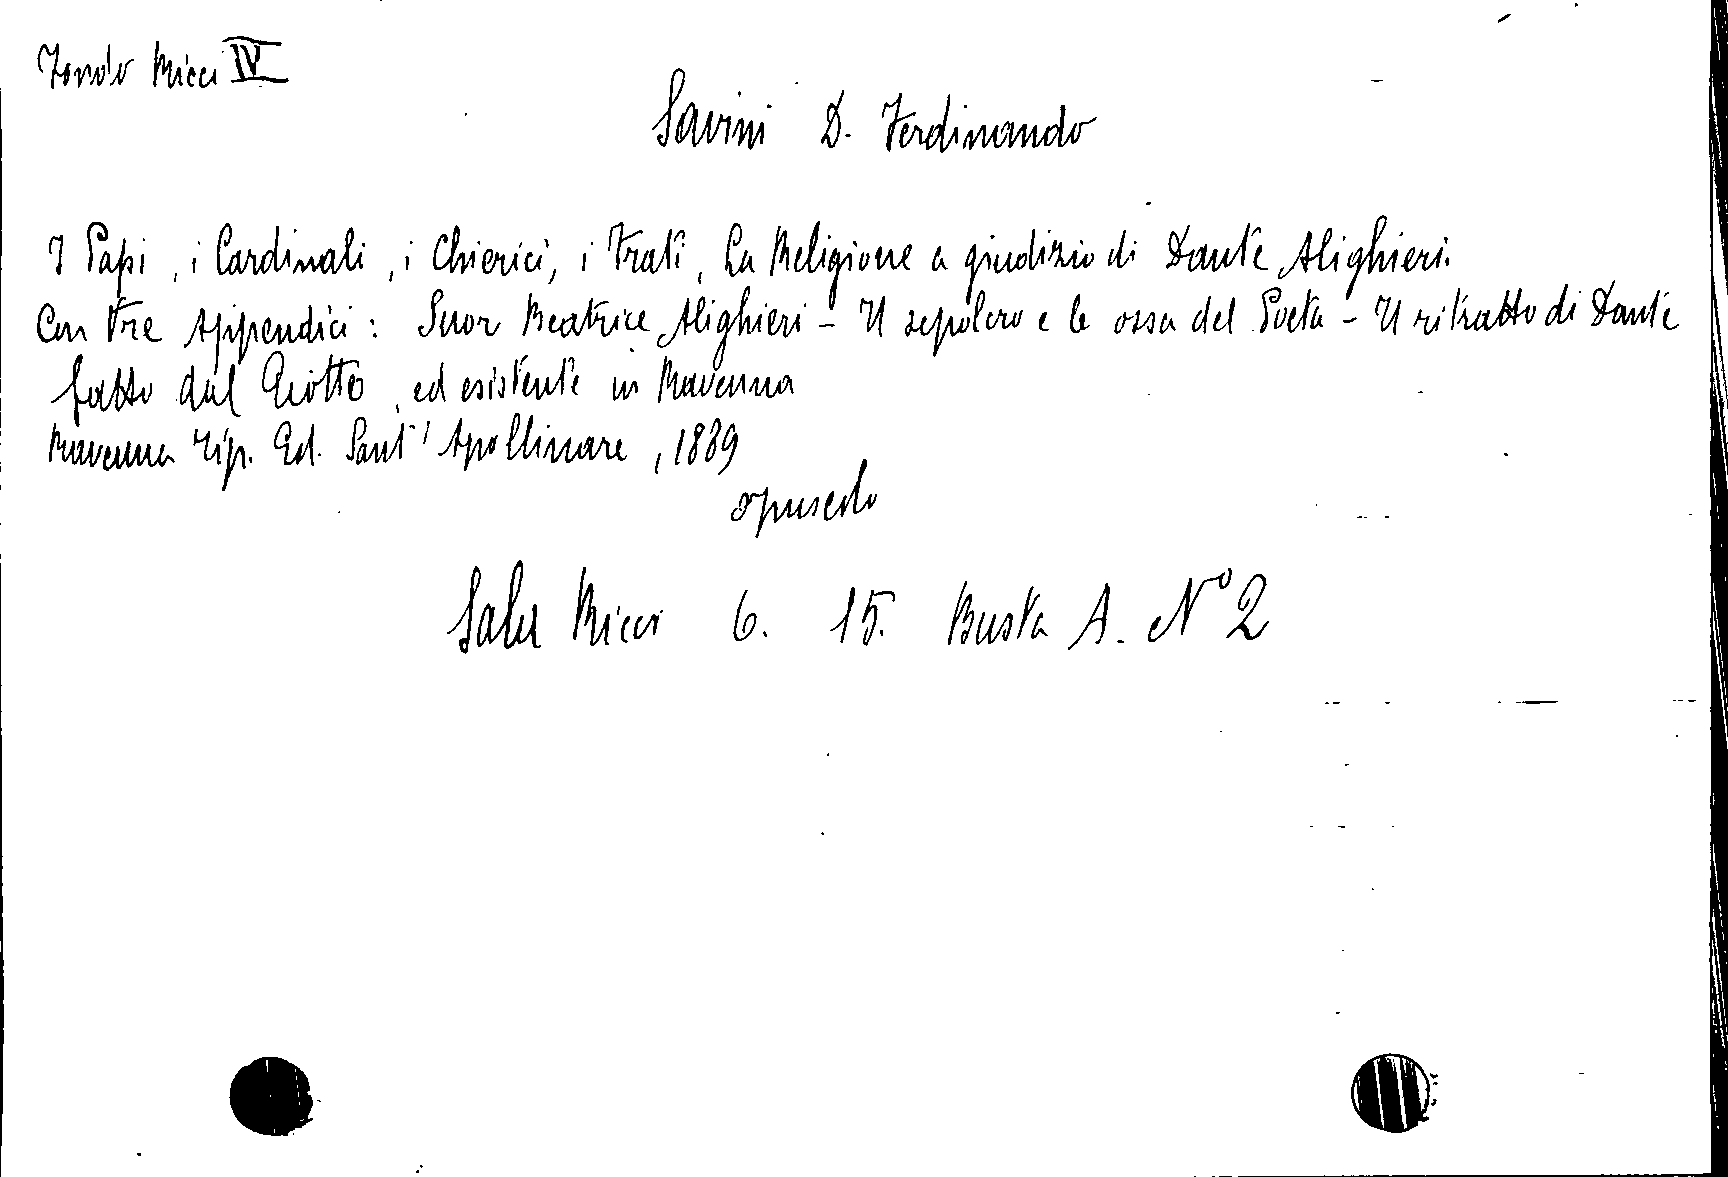 Fondo Ricci IV
Savini D. Ferdinando
I Papi, i Cardinali, i Chierici, i Frati, La Religione a giudizio di Dante Alighieri.
Con tre Appendici: Suor Beatrice Alighieri - Il sepolcro e le ossa del Poeta - Il ritratto di Dante
fatto dal Giotto, ed esistente in Ravenna
Ravenna Tip. Ed. Sant' Apollinare, 1889
opuscolo
Sala Ricci 6. 15. Busta A. N° 2